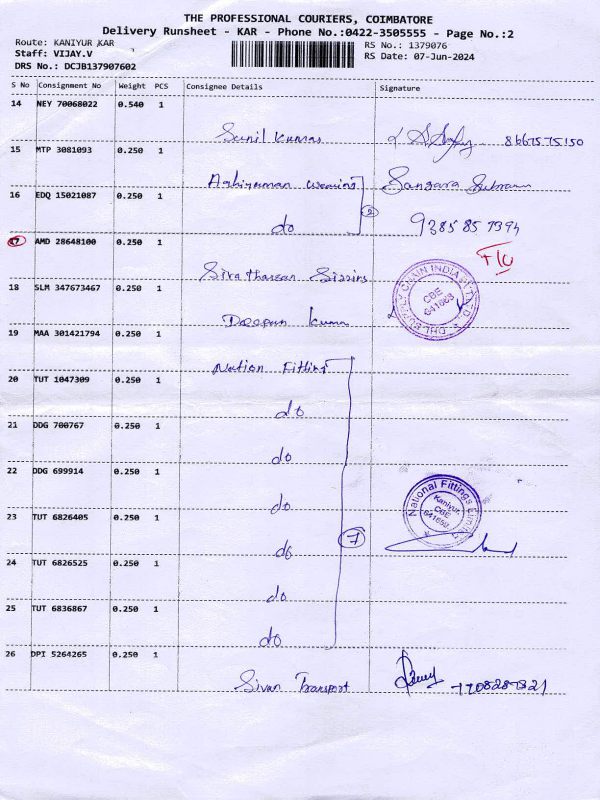 THE PROFESSIONAL COURIERS, COIMBATORE
Delivery Runsheet - KAR - Phone No.:0422-3505555 - Page No.:2
Route: KANIYUR KAR
RS No.: 1379076
Staff: VIJAY.V
RS Date: 07-Jun-2024
DRS No.: DCJB137907602
S No Consignment No Weight PCS Consignee Details Signature
14 NEY 70068022 0.540 1
Sunil Kumar 8667575150
15 MTP 3081093 0.250 1
16 EDQ 15021087 0.250 1
do 2
17 AMD 28648100 0.250 1
18 SLM 347673467 0.250 1
DHL SUPPLY CHAIN INDIA PVT LTD
CBE
19 MAA 301421794 0.250 1
Nation Fitting
20 TUT 1047309 0.250 1
do
21 DDG 700767 0.250 1
do
22 DDG 699914 0.250 1
do
National Fittings Limited
Kaniyur,
CBE
23 TUT 6826405 0.250 1
do 7
24 TUT 6826525 0.250 1
do
25 TUT 6836867 0.250 1
do
26 DPI 5264265 0.250 1
Sivan Transport